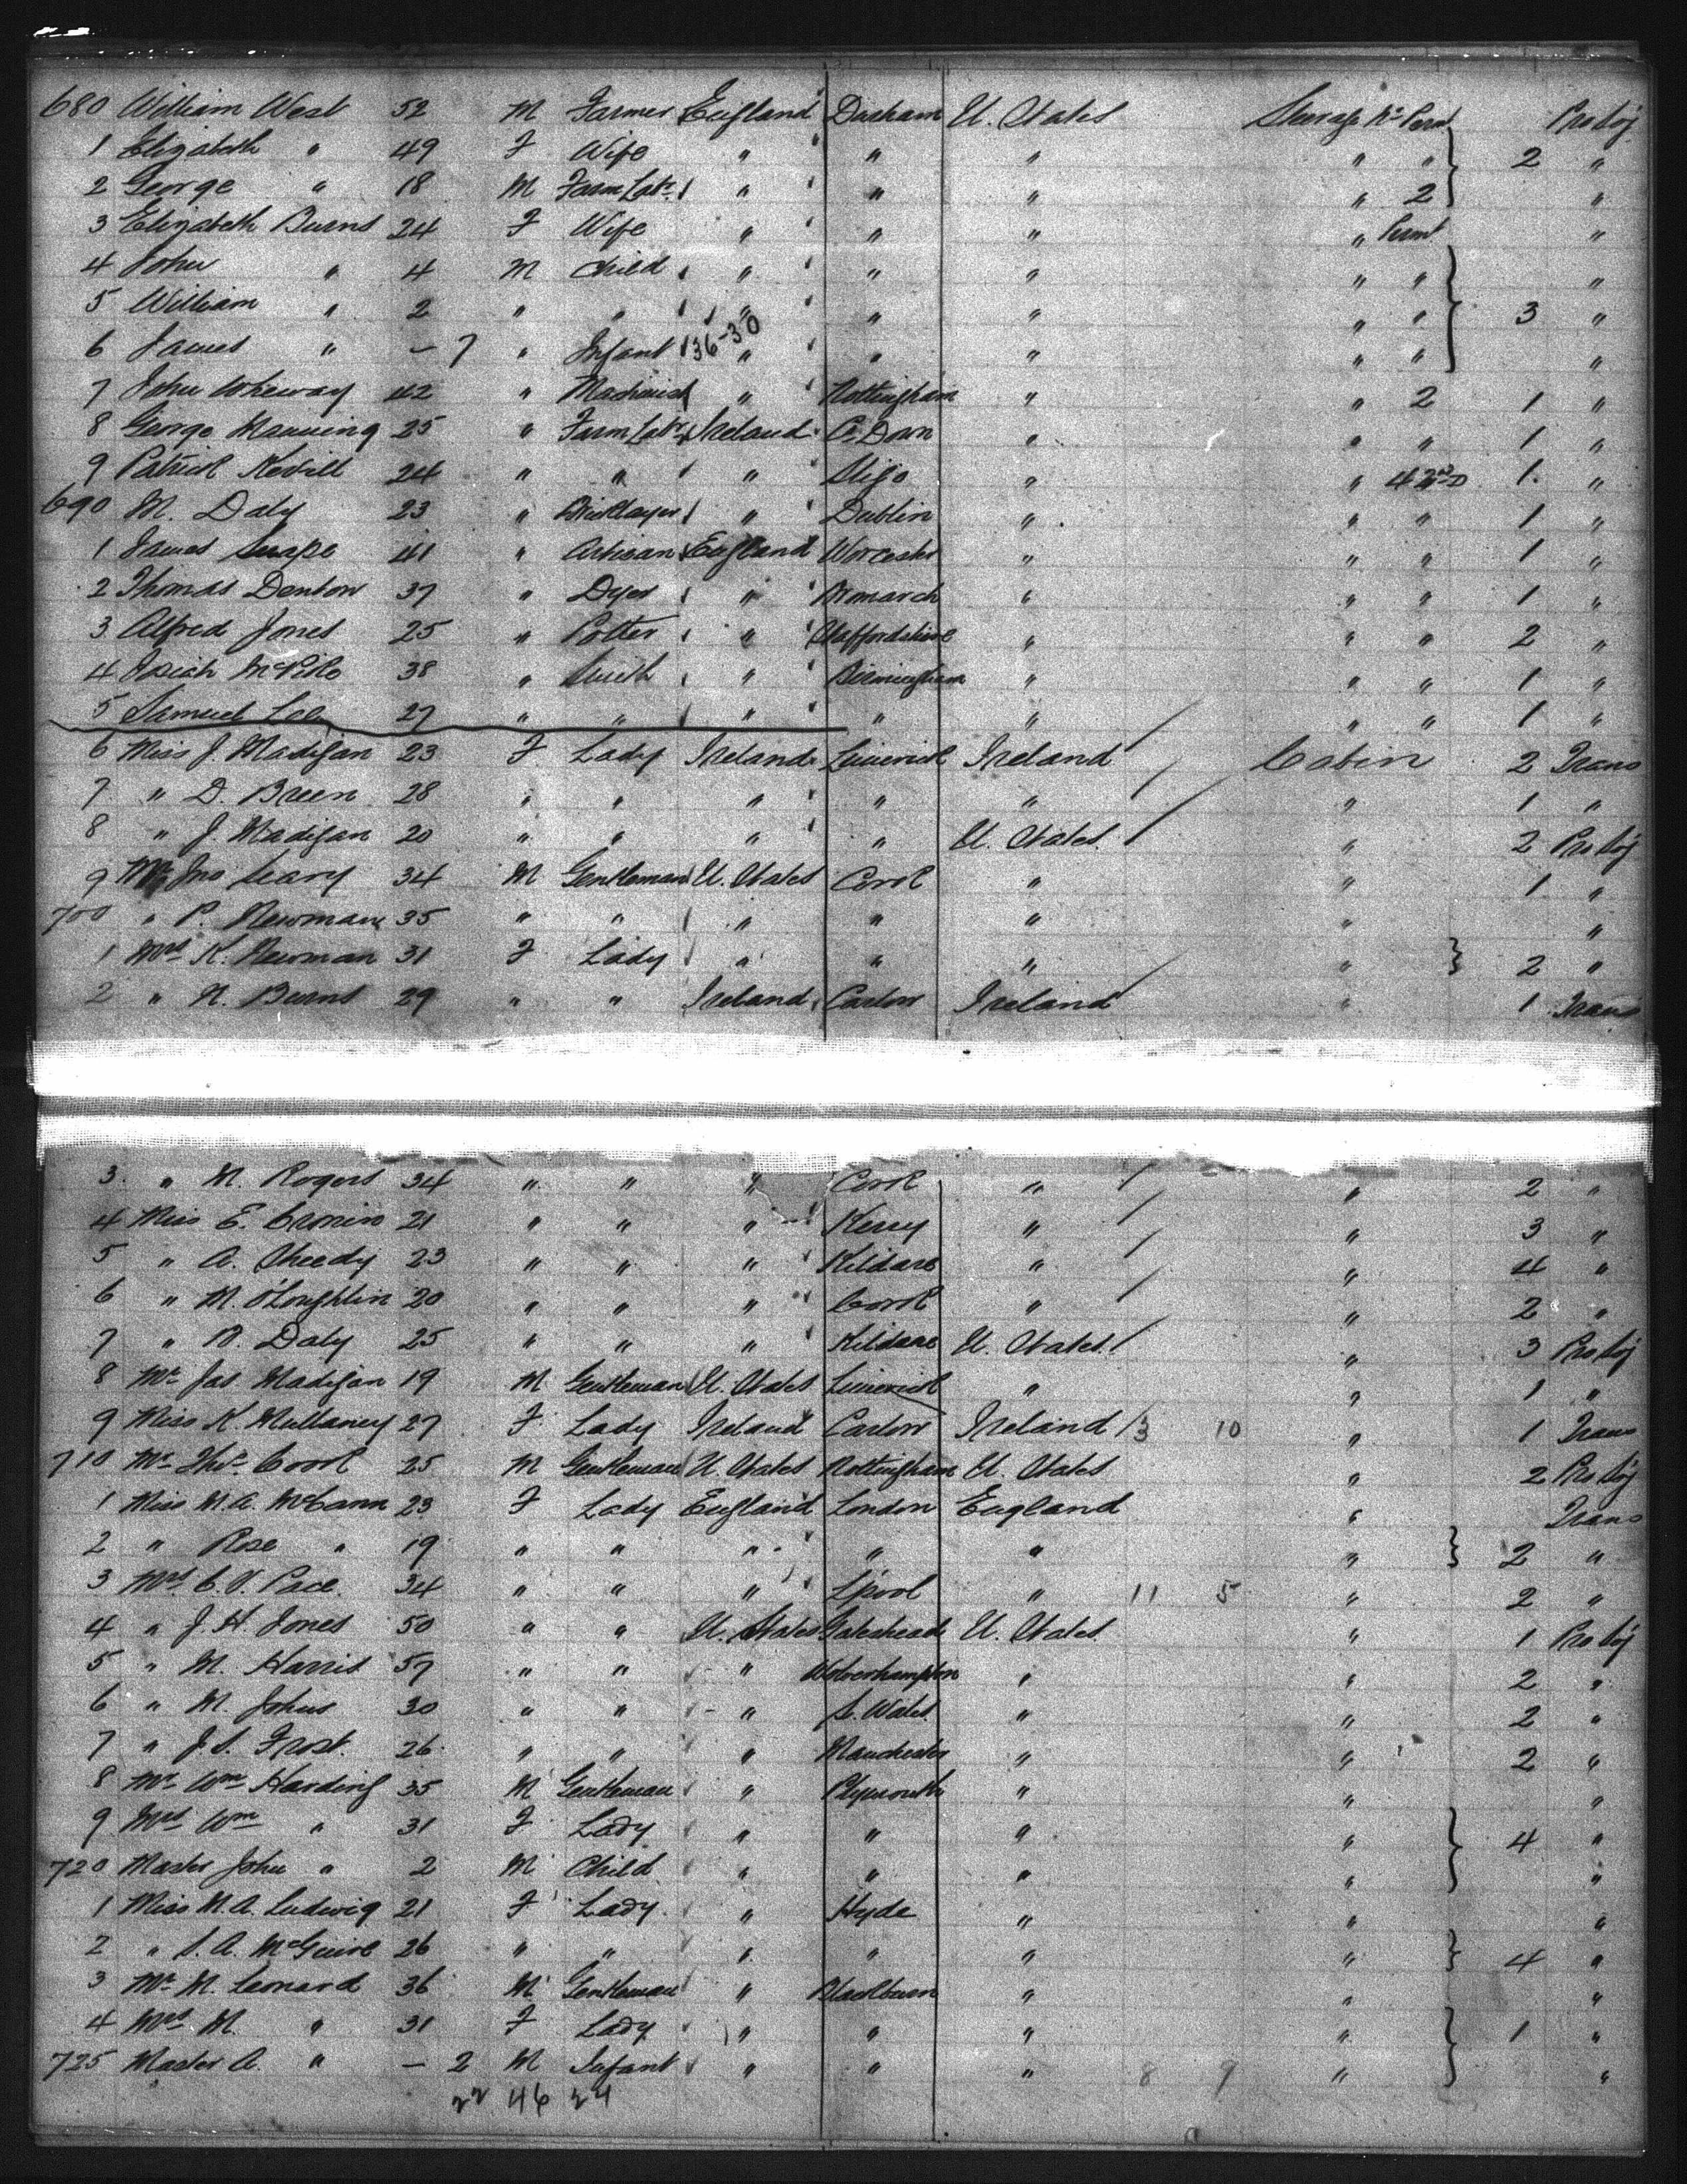 680 William West 52 M Farmer England Durham U. States Steerage Permt Pro Soj
1 Elizabeth " 49 F Wife " " " " " 2 "
2 George " 18 M Farm Labr " " " " 2 "
3 Elizabeth Burns 24 F Wife " " " " Permt "
4 John " 4 M Child " " " " " "
5 William " 2 " " " " " " " 3 "
6 James " – 7 " Infant 136-30 " " " " " "
7 John Wheway 42 " Machinist " Nottingham " " 2 1 "
8 George Manning 25 " Farm Labr Ireland Co. Down " " " 1 "
9 Patrick 24 " " " Sligo " " 4 1 "
690 M. Daly 23 " Bricklayer " Dublin " " " 1 "
1 James Snape 41 " Artisan England Worcester " " " 1 "
2 Thomas Denton 37 " Dyer " " " " 1 "
3 Alfred Jones 25 " Potter " Staffordshire " " " 2 "
4 38 " Smith " Birmingham " " " 1 "
5 Samuel Lee 27 " " " " " " " 1 "
6 Miss J. Madigan 23 F Lady Ireland Limerick Ireland Cabin 2 Trans
7 " D. Breen 28 " " " " " " 1 "
8 " J. Madigan 20 " " " " U. States " 2 Pro Soj
9 Mr Jno Leary 34 M Gentleman U. States Cork " " 1 "
700 " P. Newman 35 " " " " " " "
1 Mrs K. Newman 31 F Lady " " " " 2 "
2 " N. Burns 29 " " Ireland Carlow Ireland " 1 Trans
3 " M. Rogers 34 " " " Cork " " 2 "
4 Miss E. Cronin 21 " " " Kerry " " 3 "
5 " A. Sheedy 23 " " " Kildare " " 4 "
6 " M. O'Loughlin 20 " " " Cork " " 2 "
7 " B. Daly 25 " " " Kildare U. States " 3 Pro Soj
8 Mr Jas Madigan 19 M Gentleman U. States Limerick " " 1 "
9 Miss K. Mullaney 27 F Lady Ireland Carlow Ireland 13 10 " 1 Trans
710 Mr Thos Cook 25 M Gentleman U. States Nottingham U. States " 2 Pro Soj
1 Miss M. A. McCann 23 F Lady England London England " Trans
2 " Rose " 19 " " " " " " 2 "
3 Mrs C. V. Pace 34 " " " L'pool " 11 5 " 2 "
4 " J. H. Jones 50 " " U. States Gateshead U. States " 1 Pro Soj
5 " M. Harris 57 " " " Wolverhampton " " 2 "
6 " M. Johns 30 " " " S. Wales " " 2 "
7 " J. S. Frost 26 " " " Manchester " " 2 "
8 Mr Wm Harding 35 M Gentleman " Plymouth " " "
9 Mrs Wm " 31 F Lady " " " " 4 "
720 Master John " 2 M Child " " " " "
1 Miss M. A. Ludwig 21 F Lady " Hyde " " "
2 " S. A. McGuire 26 " " " " " " 4 "
3 Mr M. Leonard 36 M Gentleman " Blackburn " " "
4 Mrs M. " 31 F Lady " " " " 1 "
725 Master A. " – 2 M Infant " " " 8 9 " "
22 46 24